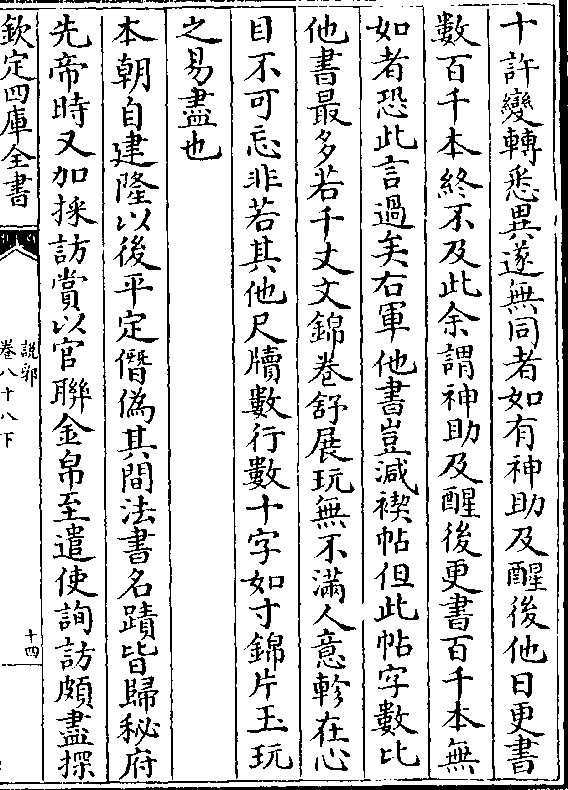 十許變轉悉異遂無同者如有神助及醒後他日更書
數百千本終不及此余謂神助及醒後更書百千本無
如者恐此言過矣右軍他書豈減禊帖但此帖字數比
他書最多若千丈文錦卷舒展玩無不滿人意軫在心
目不可忘非若其他尺牘數行數十字如寸錦片玉玩
之易盡也
本朝自建隆以後平定僭偽其間法書名蹟皆歸秘府
先帝時又加採訪賞以官聯金帛至遣使詢訪頗盡探
欽定四庫全書
說郛
卷八十八下
十四